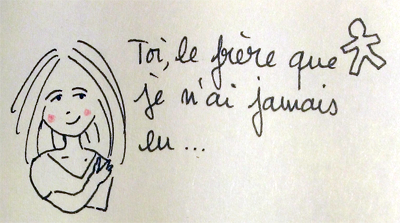 Toi, le frère que
je n'ai jamais
eu ...